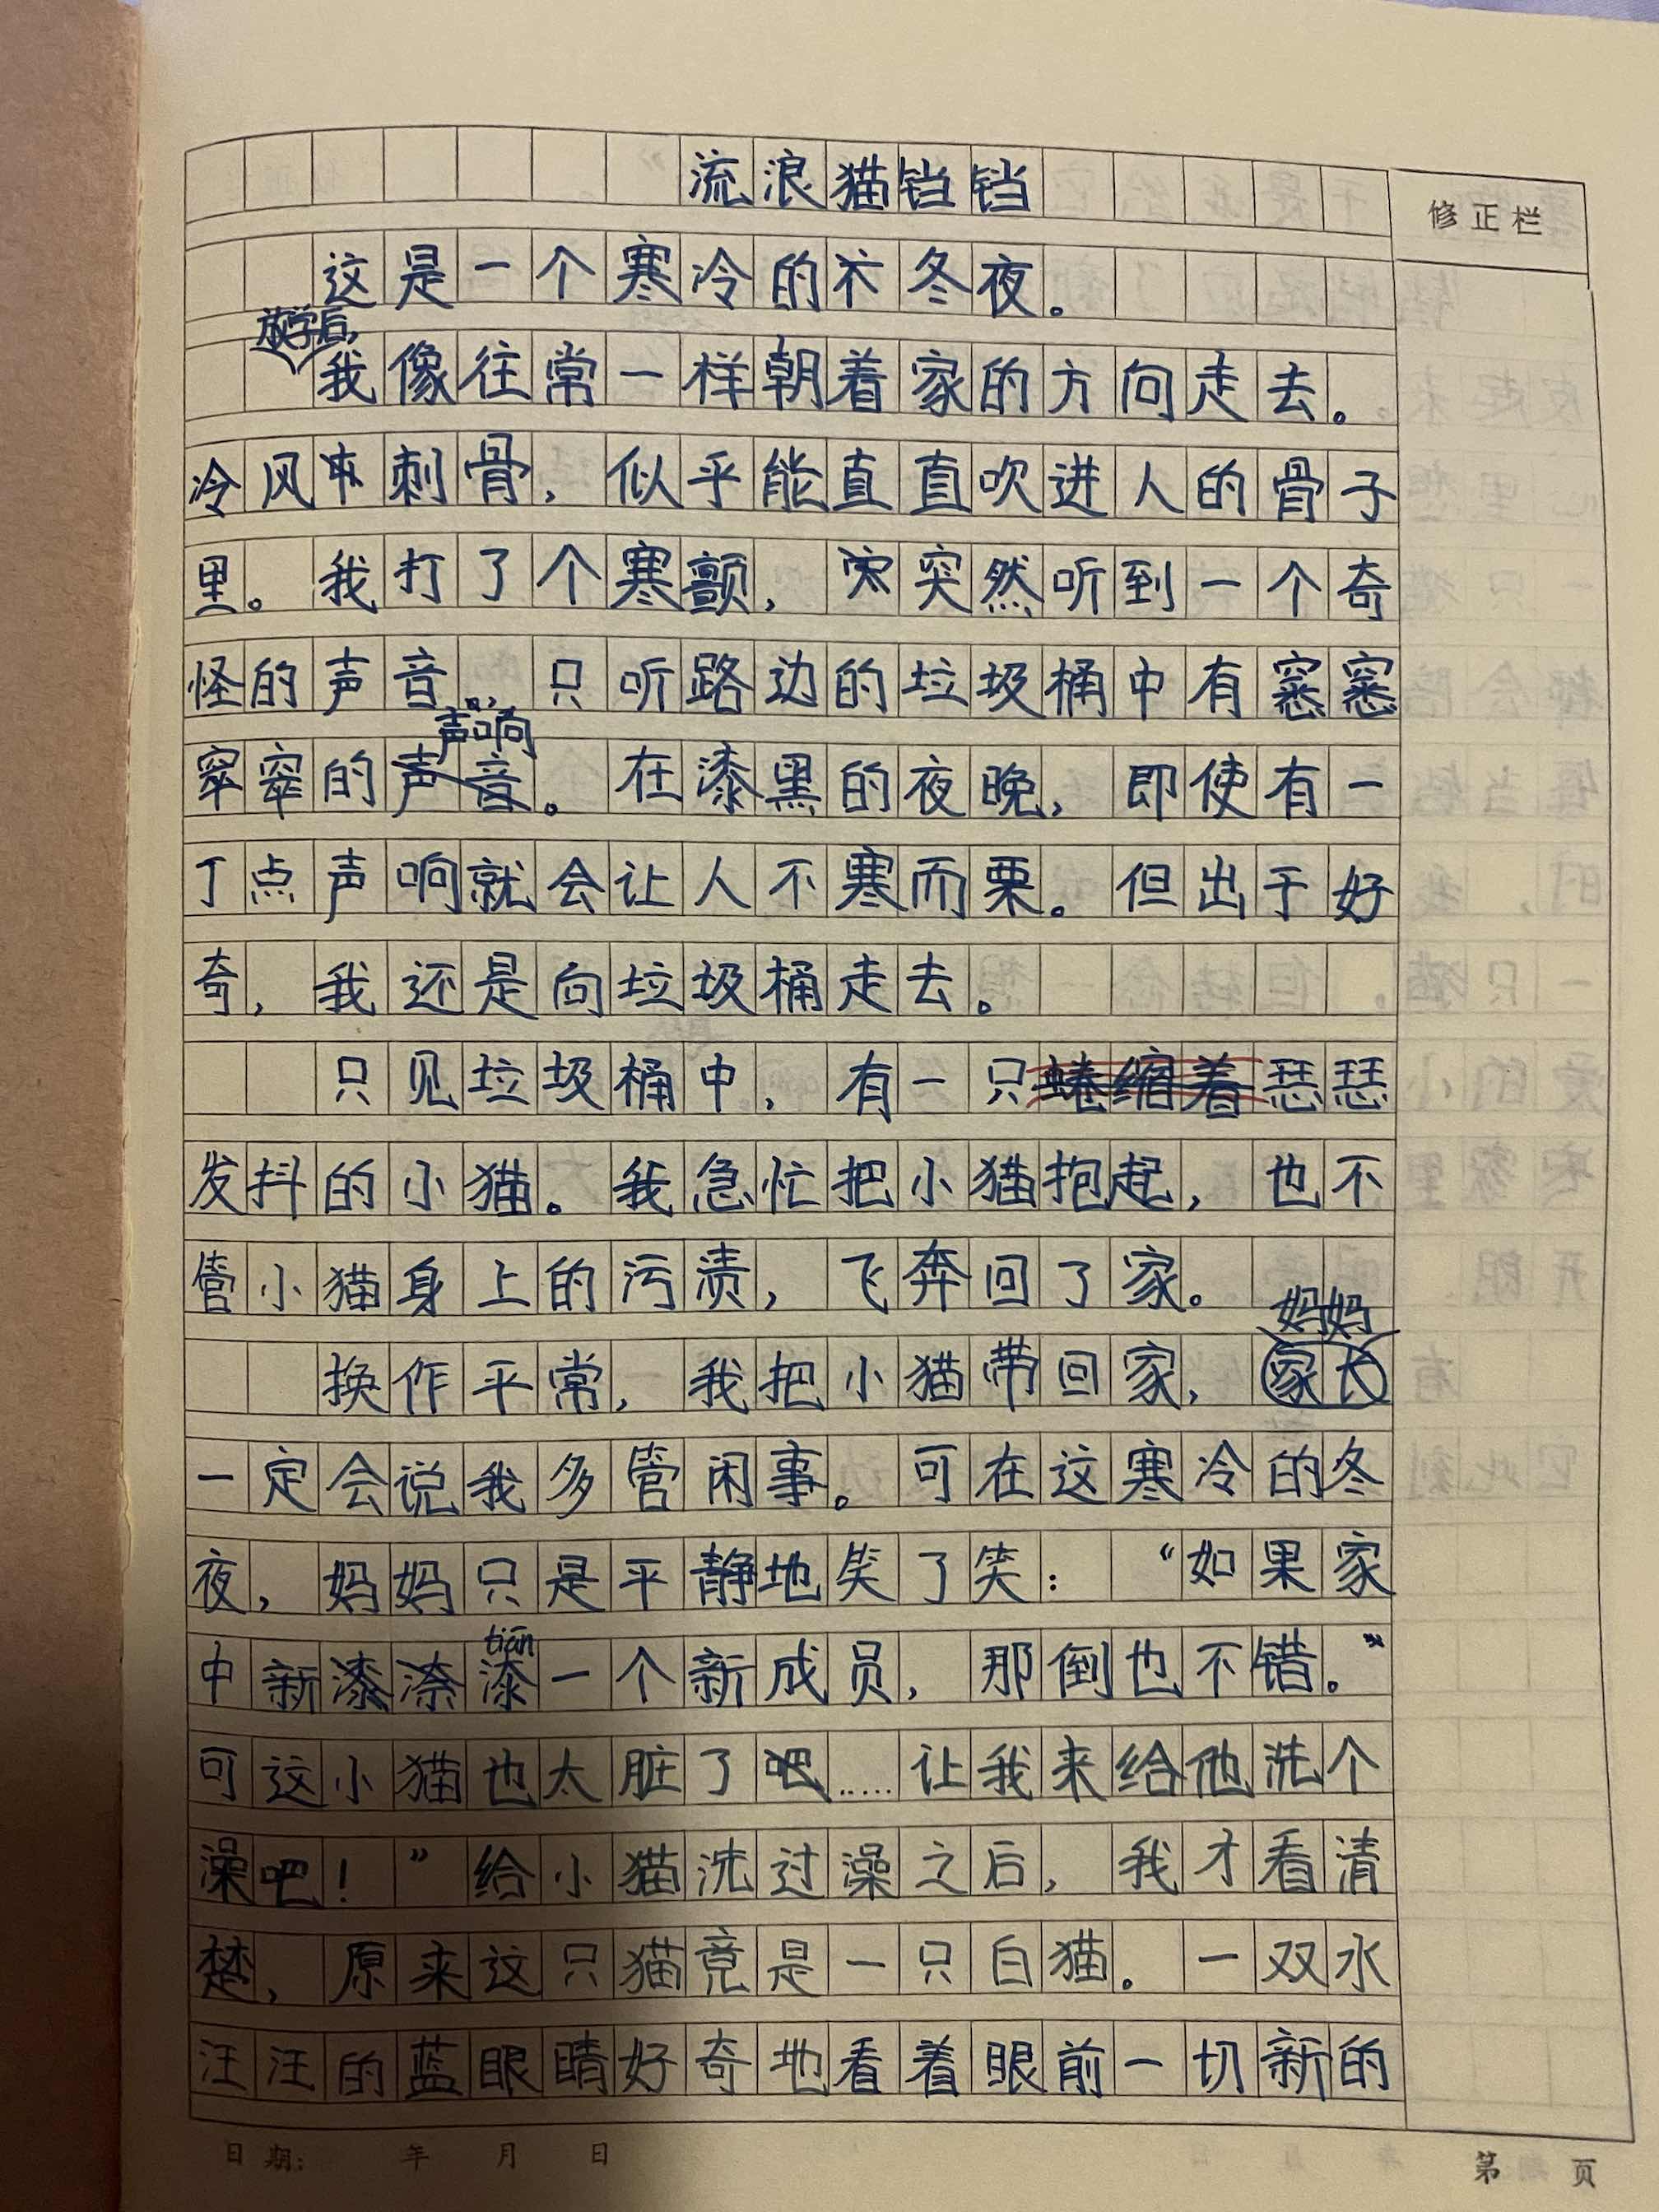 流浪猫铛铛
修正栏
这是一个寒冷的冬夜。
放学后，
我像往常一样朝着家的方向走去。
冷风刺骨，似乎能直直吹进人的骨子
里。我打了个寒颤，突然听到一个奇
怪的声音。只听路边的垃圾桶中有窸窸
声响
窣窣的声音。在漆黑的夜晚，即使有一
丁点声响就会让人不寒而栗。但出于好
奇，我还是向垃圾桶走去。
只见垃圾桶中，有一只蜷缩着瑟瑟
发抖的小猫。我急忙把小猫抱起，也不
管小猫身上的污渍，飞奔回了家。
妈妈
换作平常，我把小猫带回家，家长
一定会说我多管闲事。可在这寒冷的冬
夜，妈妈只是平静地笑了笑：“如果家
tiān
中新一个新成员，那倒也不错。”
可这小猫也太脏了吧……让我来给他洗个
澡吧！”给小猫洗过澡之后，我才看清
楚，原来这只猫竟是一只白猫。一双水
汪汪的蓝眼睛好奇地看着眼前一切新的
日期： 年 月 日
第 页